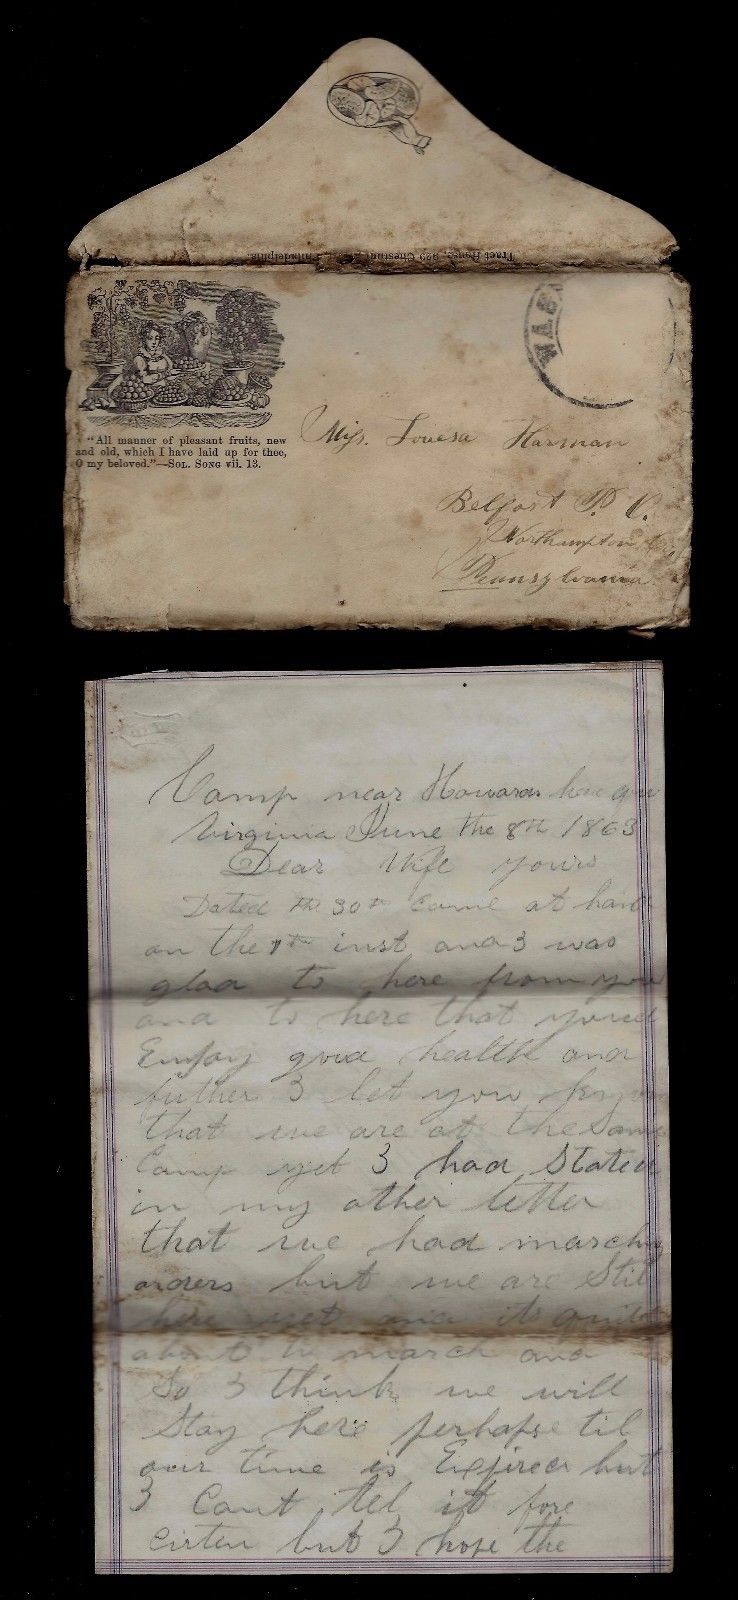 Tract House, 929 Chestnut Philadelphia
WAS
"All manner of pleasant fruits, new
and old, which I have laid up for thee,
O my beloved."—SOL. SONG vii. 13.
Miss. Louesa Harman
Belfast P. O.
Northampton Co,
Pennsylvania
Camp near Howards
Virginia June the 8th 1863
Dear Wife yours
Dated the 30th came at hand
on the 7th inst and I was
glad to here from you
and to here that you
Enjoy good health and
futher I let you know
that we are at the same
Camp yet I had Stated
in my other letter
that we had marchg
orders but we are Stil
here yet and its quiet
about to march and
So I think we will
Stay here perhapse til
our time is Expired but
I Cant tel it fore
certen but I hope the